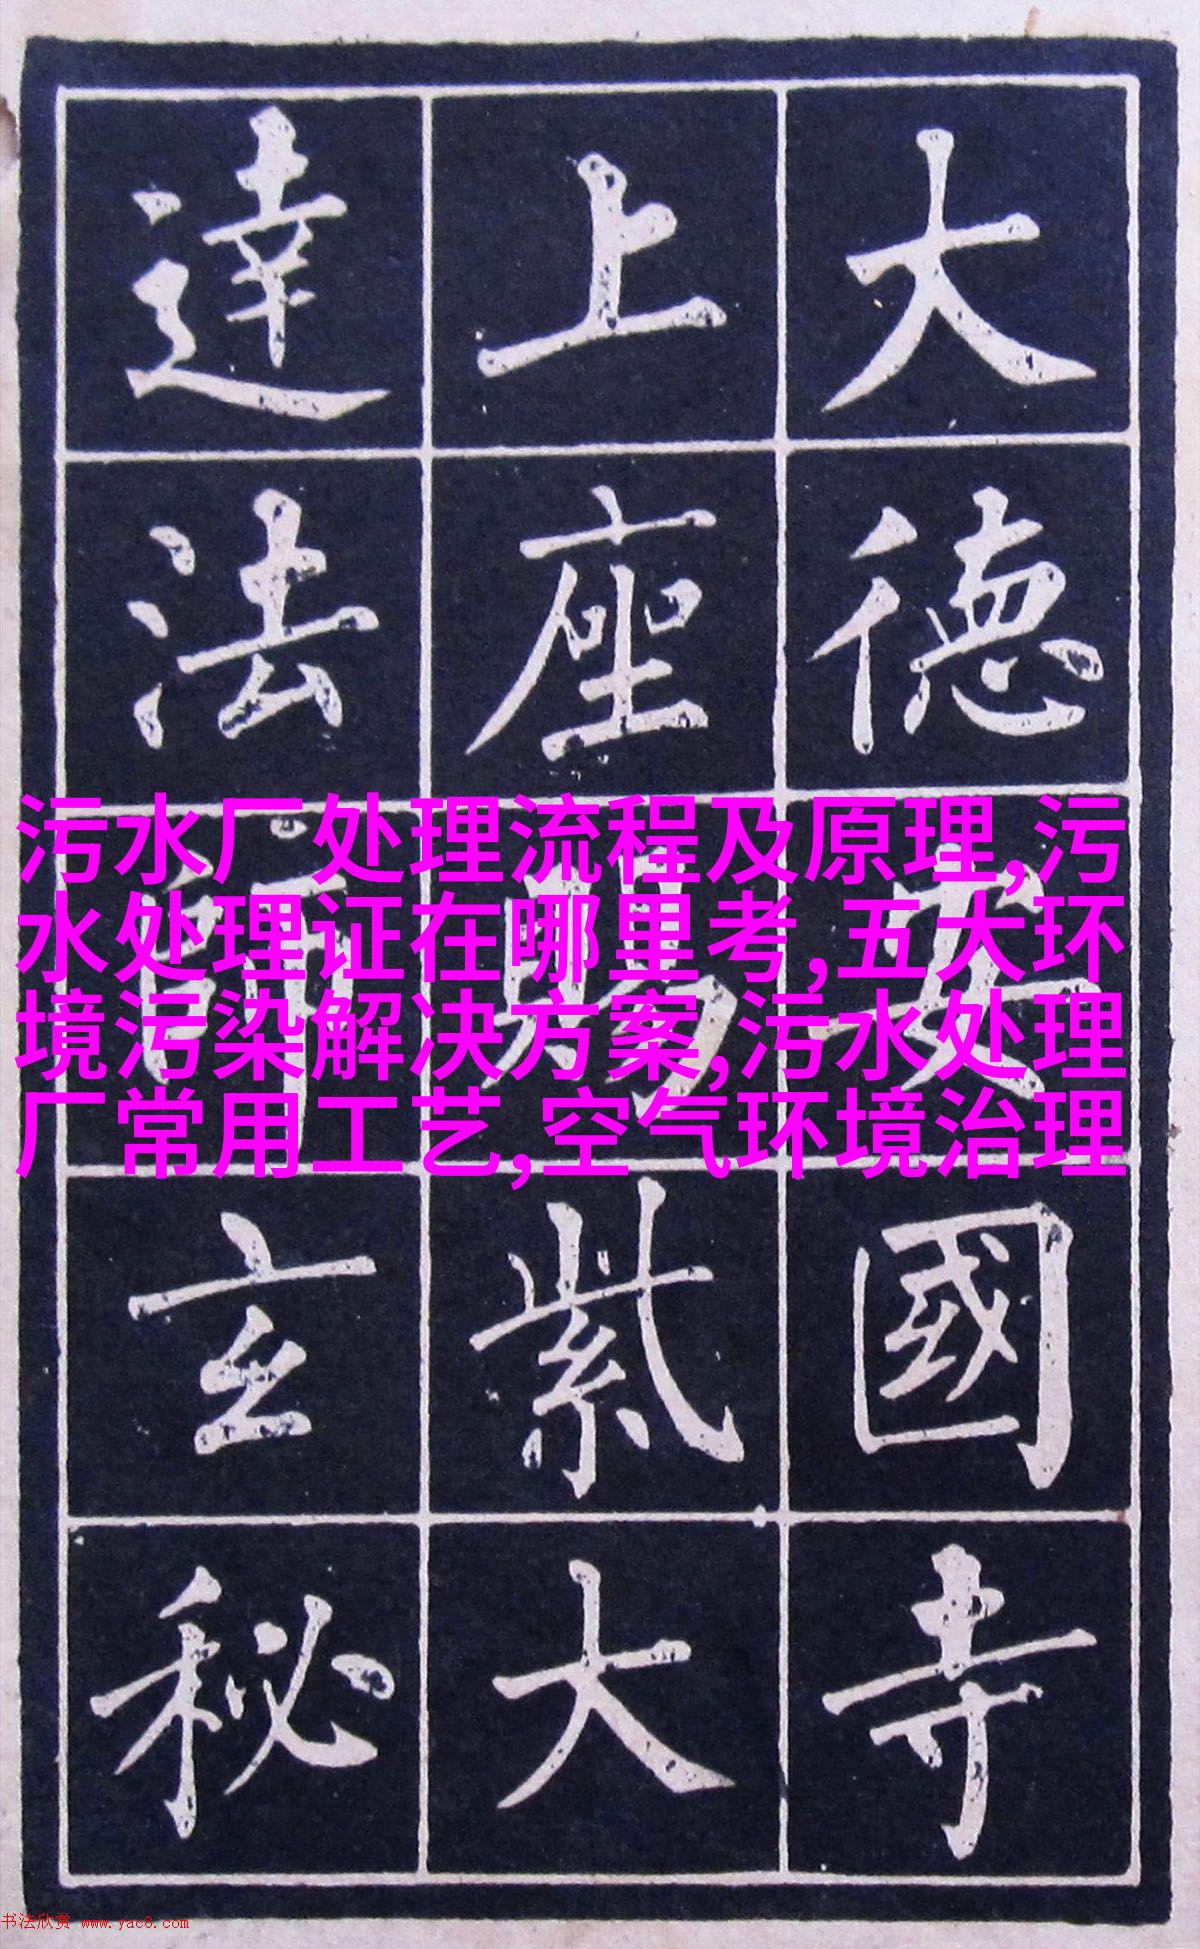 大德安國寺
上座賜紫大
達法師玄秘
污水厂处理流程及原理,污
水处理证在哪里考,五大环
境污染解决方案,污水处理
厂常用工艺,空气环境治理
书法欣赏 www.yac8.com